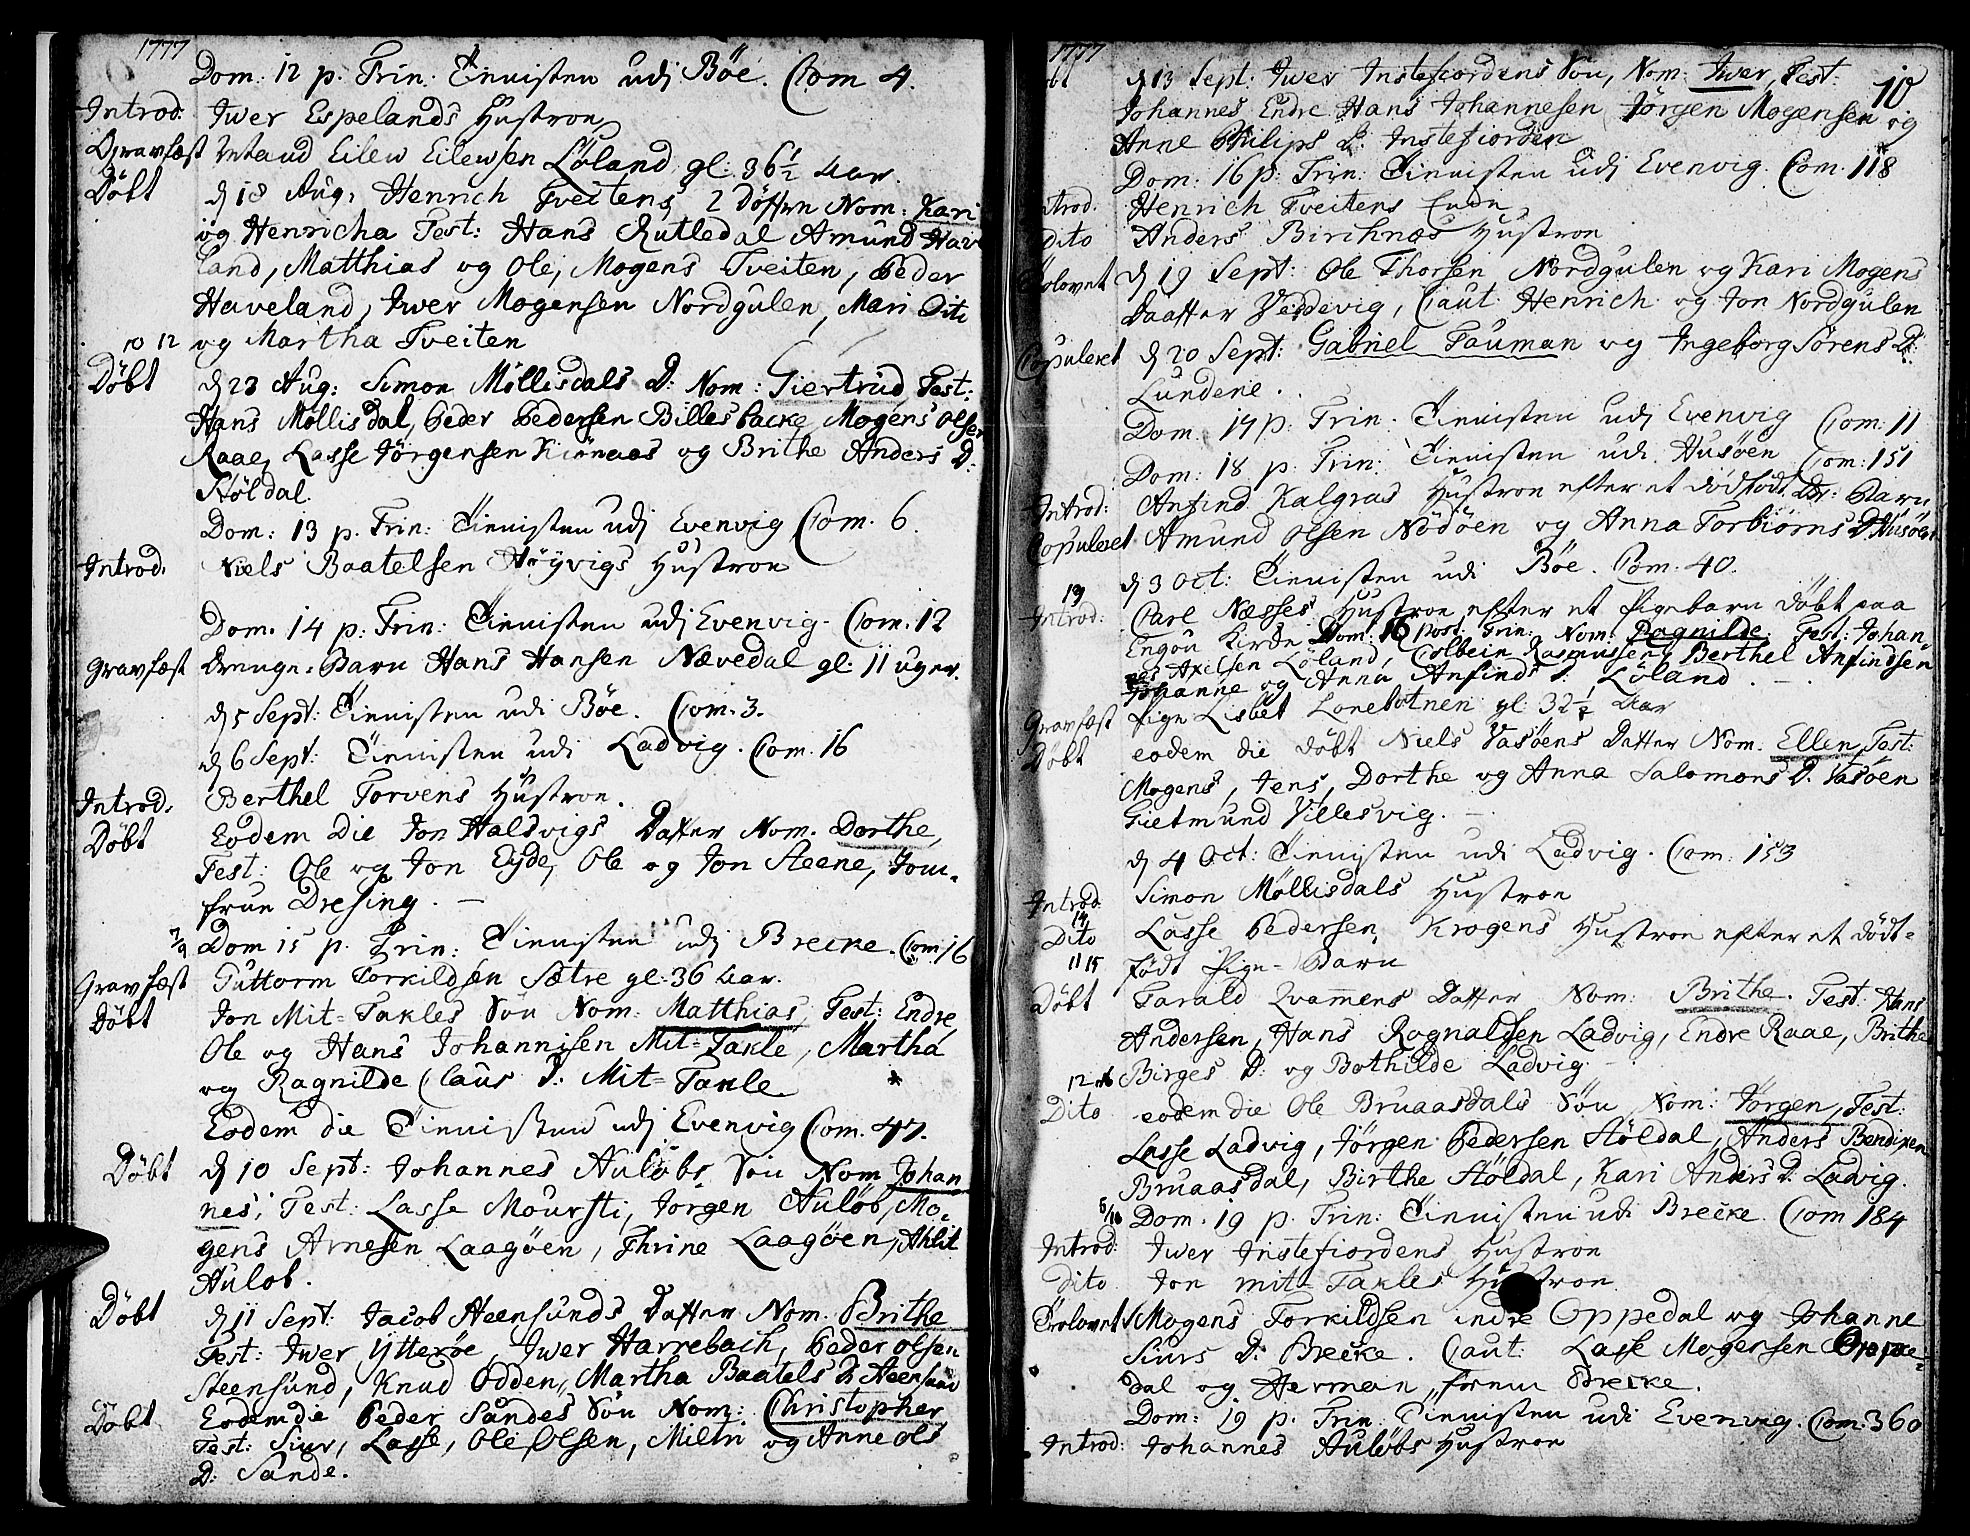 1777
Dom: 12 p. Trin: Tienisten udj Böe. Com 4.
Introd: Iver Espelands Hustroe
Gravfæst Mand Eilew Eilewsen Löland gl: 36 1/2 Aar.
Döbt d 18 Aug: Henrich Tveitens 2 Döttre Nom: Kari
og Henricha Test: Hans Rutledal Amund Have
land, Matthias og Ole, Mogens Tveiten, Peder
Haveland, Iwer Mogensen Nordgulen, Mari Dito
10 12 og Martha Tveiten
Döbt d 23 Aug: Simon Möllisdals D. Nom: Giertrud, Test:
Hans Möllisdal, Peder Pedersen Billesbacke Mogens Olsen
Raae, Lasse Jörgensen Kirnaes og Brithe Anders D:
Stöldal.
Dom: 13 p. Trin: Tienisten udj Evenvig Com. 6
Introd: Niels Baatelsen Höyvigs Hustroe
Dom. 14 p: Trin: Tienisten udj Evenvig. Com. 12
Gravfæst Drenge-Barn Hans Hansen Nævedal gl: 11 uger.
d 5 Sept: Tienisten udi Böe. Com. 3.
d 6 Sept: Tienisten udi Ladvig. Com. 16
Introd: Berthel Torvens Hustroe.
Döbt Eodem die Jon Halsvigs Datter Nom. Dorthe,
Test: Ole og Jon Eyde, Ole og Jon Steene, Jom-
frue Dresing.
7/9 Dom 15 p. Trin: Tienisten udj Brecke. Com 16
Gravfæst Guttorm Torkildsen Sætre gl: 36 Aar.
Döbt Jon Mit-Takles Sön Nom: Matthias, Test: Endre,
Ole og Hans Johannisen Mit-Takle, Martha
og Ragnilde Claus D: Mit-Takle
Eodem die Tienisten udj Evenvig Com. 47.
Döbt d 10 Sept: Johannes Aulöbs Sön Nom Johan
nes, Test: Lasse Moursti, Jorgen Aulöb, Mo-
gens Arnesen Laagöen, Thrine Laagöen, Ahlit
Aulob.
Döbt d 11 Sept: Jacob Steensunds Datter Nom. Brithe
Test: Iwer Ytteröe, Iwer Harrebach, Peder Olsen
Steensund, Knud Odden, Martha Baatels D. Steensund
Döbt Eodem die Peder Sandes Sön Nom: Christopher,
Test: Siur, Lasse, Ole Olsen, og Anne Ols
D: Sande.
1777
10
d 13 Sept: Iwer Instefiordens Sön, Nom: Iwer, Test:
Johannes, Endre Hans Johannesen Jörgen Mogensen og
Anne Philips D: Instefiorden
Dom: 16 p: Trin: Tienisten udj Evenvig. Com. 118
Introd. Henrich Tveitens
Dito Anders Birchnæs Hustroe
Trolovet d 19 Sept: Ole Thorsen Nordgulen og Kari Mogens
Daatter Veddevig, Caut: Henrich og Jon Nordgulen
Copuleret d 20 Sept: Gabriel Fauman og Ingeborg Sörens D:
Lundene.
Dom. 17 p: Trin: Tienisten udj Evenvig Com: 11
Dom: 18 p. Trin: Tienisten udi Husöen Com: 151
Introd: Anfind Kalgras Hustroe efter et dödfödt Barn
Copuleret Amund Olsen Nödöen og Anna Torbiörns D. Husöen
d 3 Oct: Tienisten udi Böe. Com. 40.
13
Introd: Carl Næsses Hustroe efter et Pigebarn döbt paa
Engöu Kirke Dom: 16 post Trin: Nom: Ragnilde Test: Johan
nes Axelsen Löland, Colbein Rasmussen, Berthel Anfindsen
Johanne og Anna Anfinds D: Löland.
Gravfæst Pige Lisbet Lonebotnen gl: 32 1/2 Aar
Döbt eodem die döbt Niels Vasöens Datter Nom. Ellen, Test:
Mogens, Jens, Dorthe og Anna Salomons D. Vasöen
Gietmund Villesvig.
d 4 Oct: Tienisten udi Ladvig. Com: 153
Introd Simon Möllisdals Hustroe
14
Dito Lasse Pedersen Krogens Hustroe efter et död-
11 15 födt Pige-Barn
Döbt Farald Qvamens Datter Nom: Brithe. Test: Hans
Andersen, Hans Rognaldsen Ladvig, Endre Raae, Brithe
Birges D: og Bothilde Ladvig
12 16
Dito eodem die Ole Bruaasdals Sön Nom: Jörgen, Test:
Lasse Ladvig, Jörgen Pedersen Stöldal, Anders Bendixen
Bruaasdal, Birthe Stöldal, Kari Anders D: Ladvig.
Dom. 19 p. Trin: Tienisten udi Brecke. Com 184
Introd: Iwer Instefiordens Hustroe
Dito Jon mit-Takles Hustroe
Trolovet Mogens Torkildsen indre Oppedal og Johanne
Siurs D: Brecke. Caut: Lasse Mogensen Oppe-
dal og Herman, Brecke.
Dom: 19 p. Trin: Tienisten udi Evenvig. Com: 360
Introd: Johannes Aulöbs Hustroe